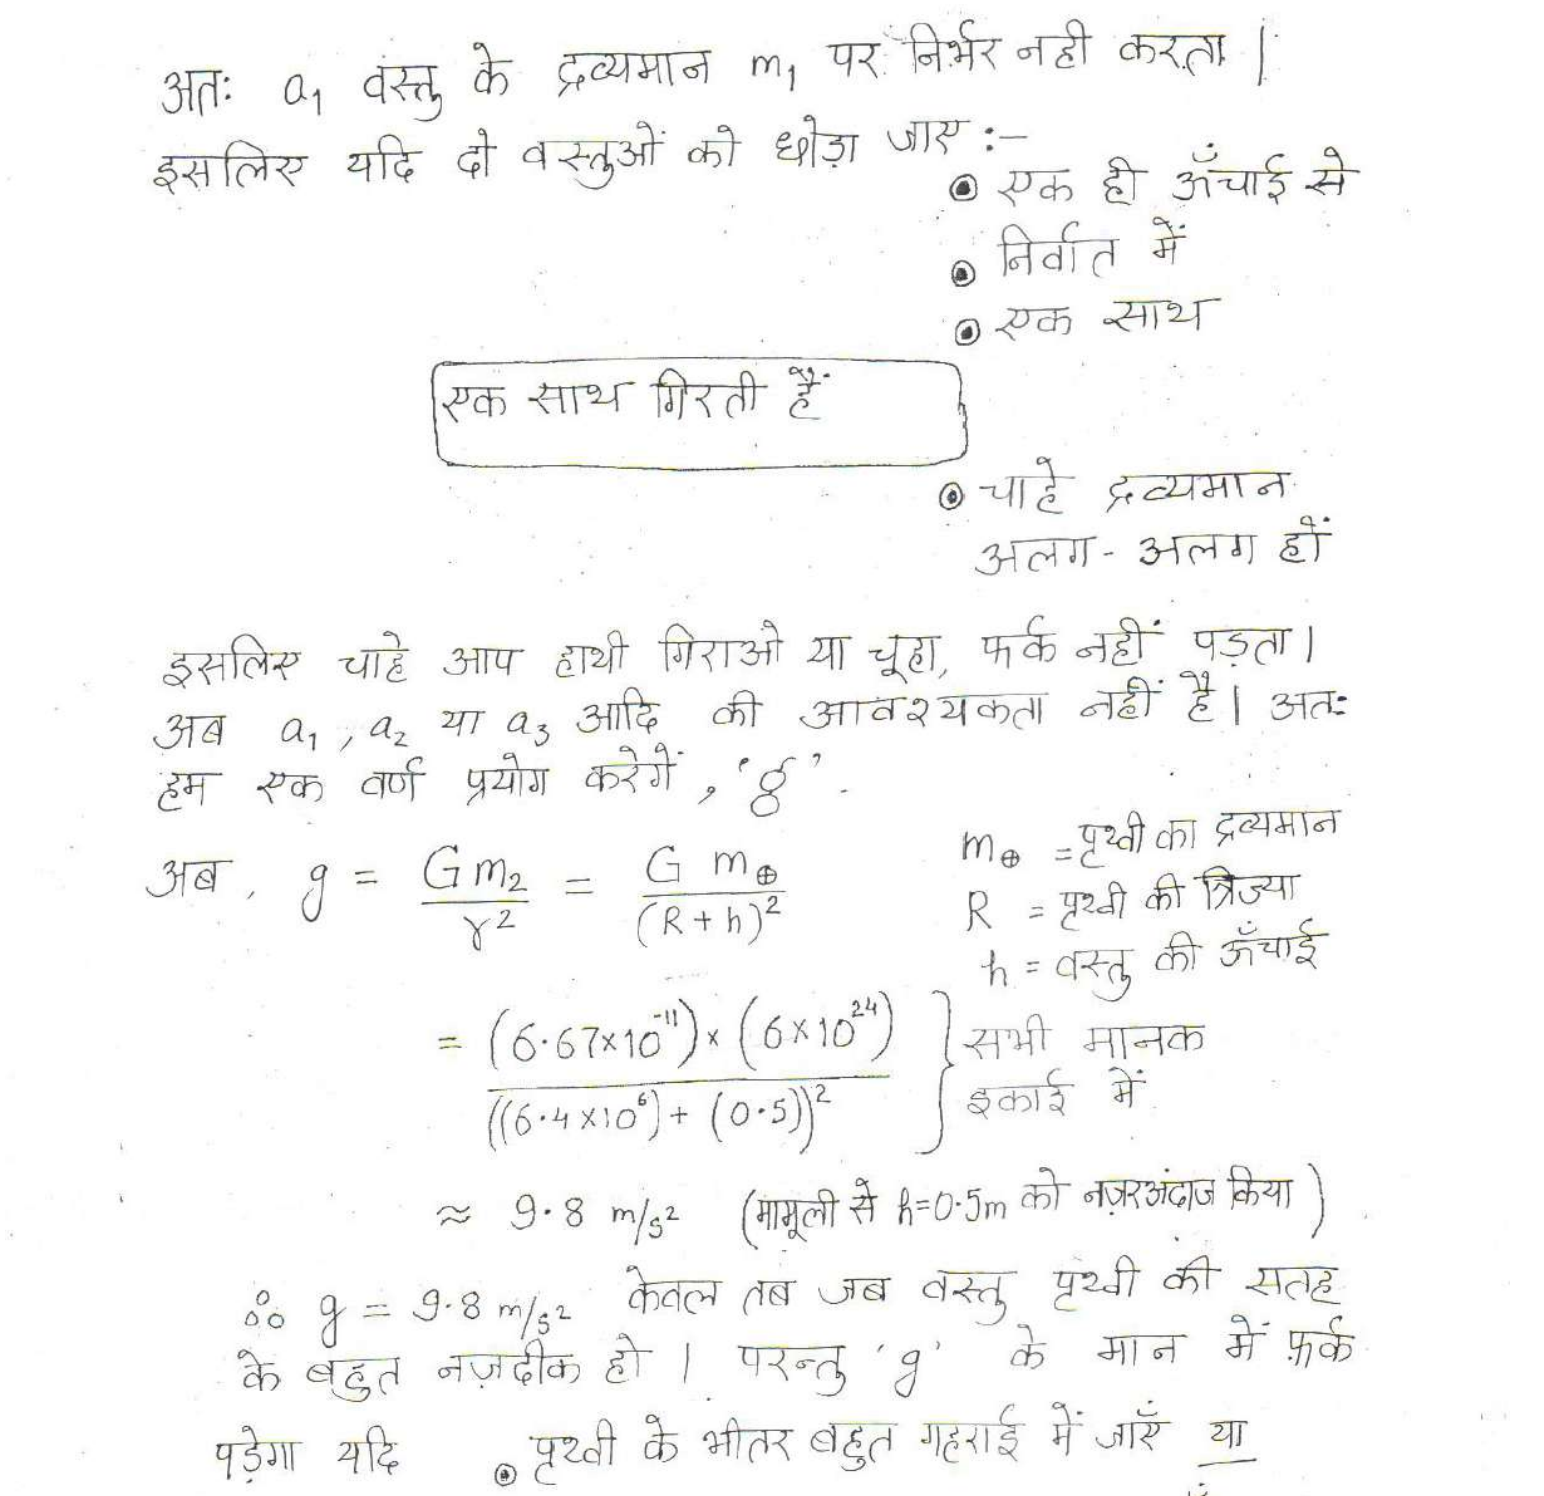 अतः a₁ वस्तु के द्रव्यमान m₁ पर निर्भर नही करता |
इसलिए यदि दो वस्तुओं को छोड़ा जाए :–
⦿ एक ही ऊँचाई से
⦿ निर्वात में
⦿ एक साथ
एक साथ गिरती हैं
⦿ चाहे द्रव्यमान
अलग - अलग हों
इसलिए चाहे आप हाथी गिराओ या चूहा, फर्क नहीं पड़ता |
अब a₁ , a₂ या a₃ आदि की आवश्यकता नहीं है | अतः
हम एक वर्ण प्रयोग करेगें , 'g' .
अब , g = Gm₂/r² = G m⊕/(R+h)²
m⊕ = पृथ्वी का द्रव्यमान
R = पृथ्वी की त्रिज्या
h = वस्तु की ऊँचाई
= (6.67×10⁻¹¹) × (6×10²⁴) / ((6.4×10⁶) + (0.5))² } सभी मानक
इकाई में
≈ 9.8 m/s² (मामूली से h=0.5m को नज़रअंदाज किया)
∴ g = 9.8 m/s² केवल तब जब वस्तु पृथ्वी की सतह
के बहुत नज़दीक हो | परन्तु 'g' के मान में फ़र्क
पड़ेगा यदि ⦿ पृथ्वी के भीतर बहुत गहराई में जाएँ या